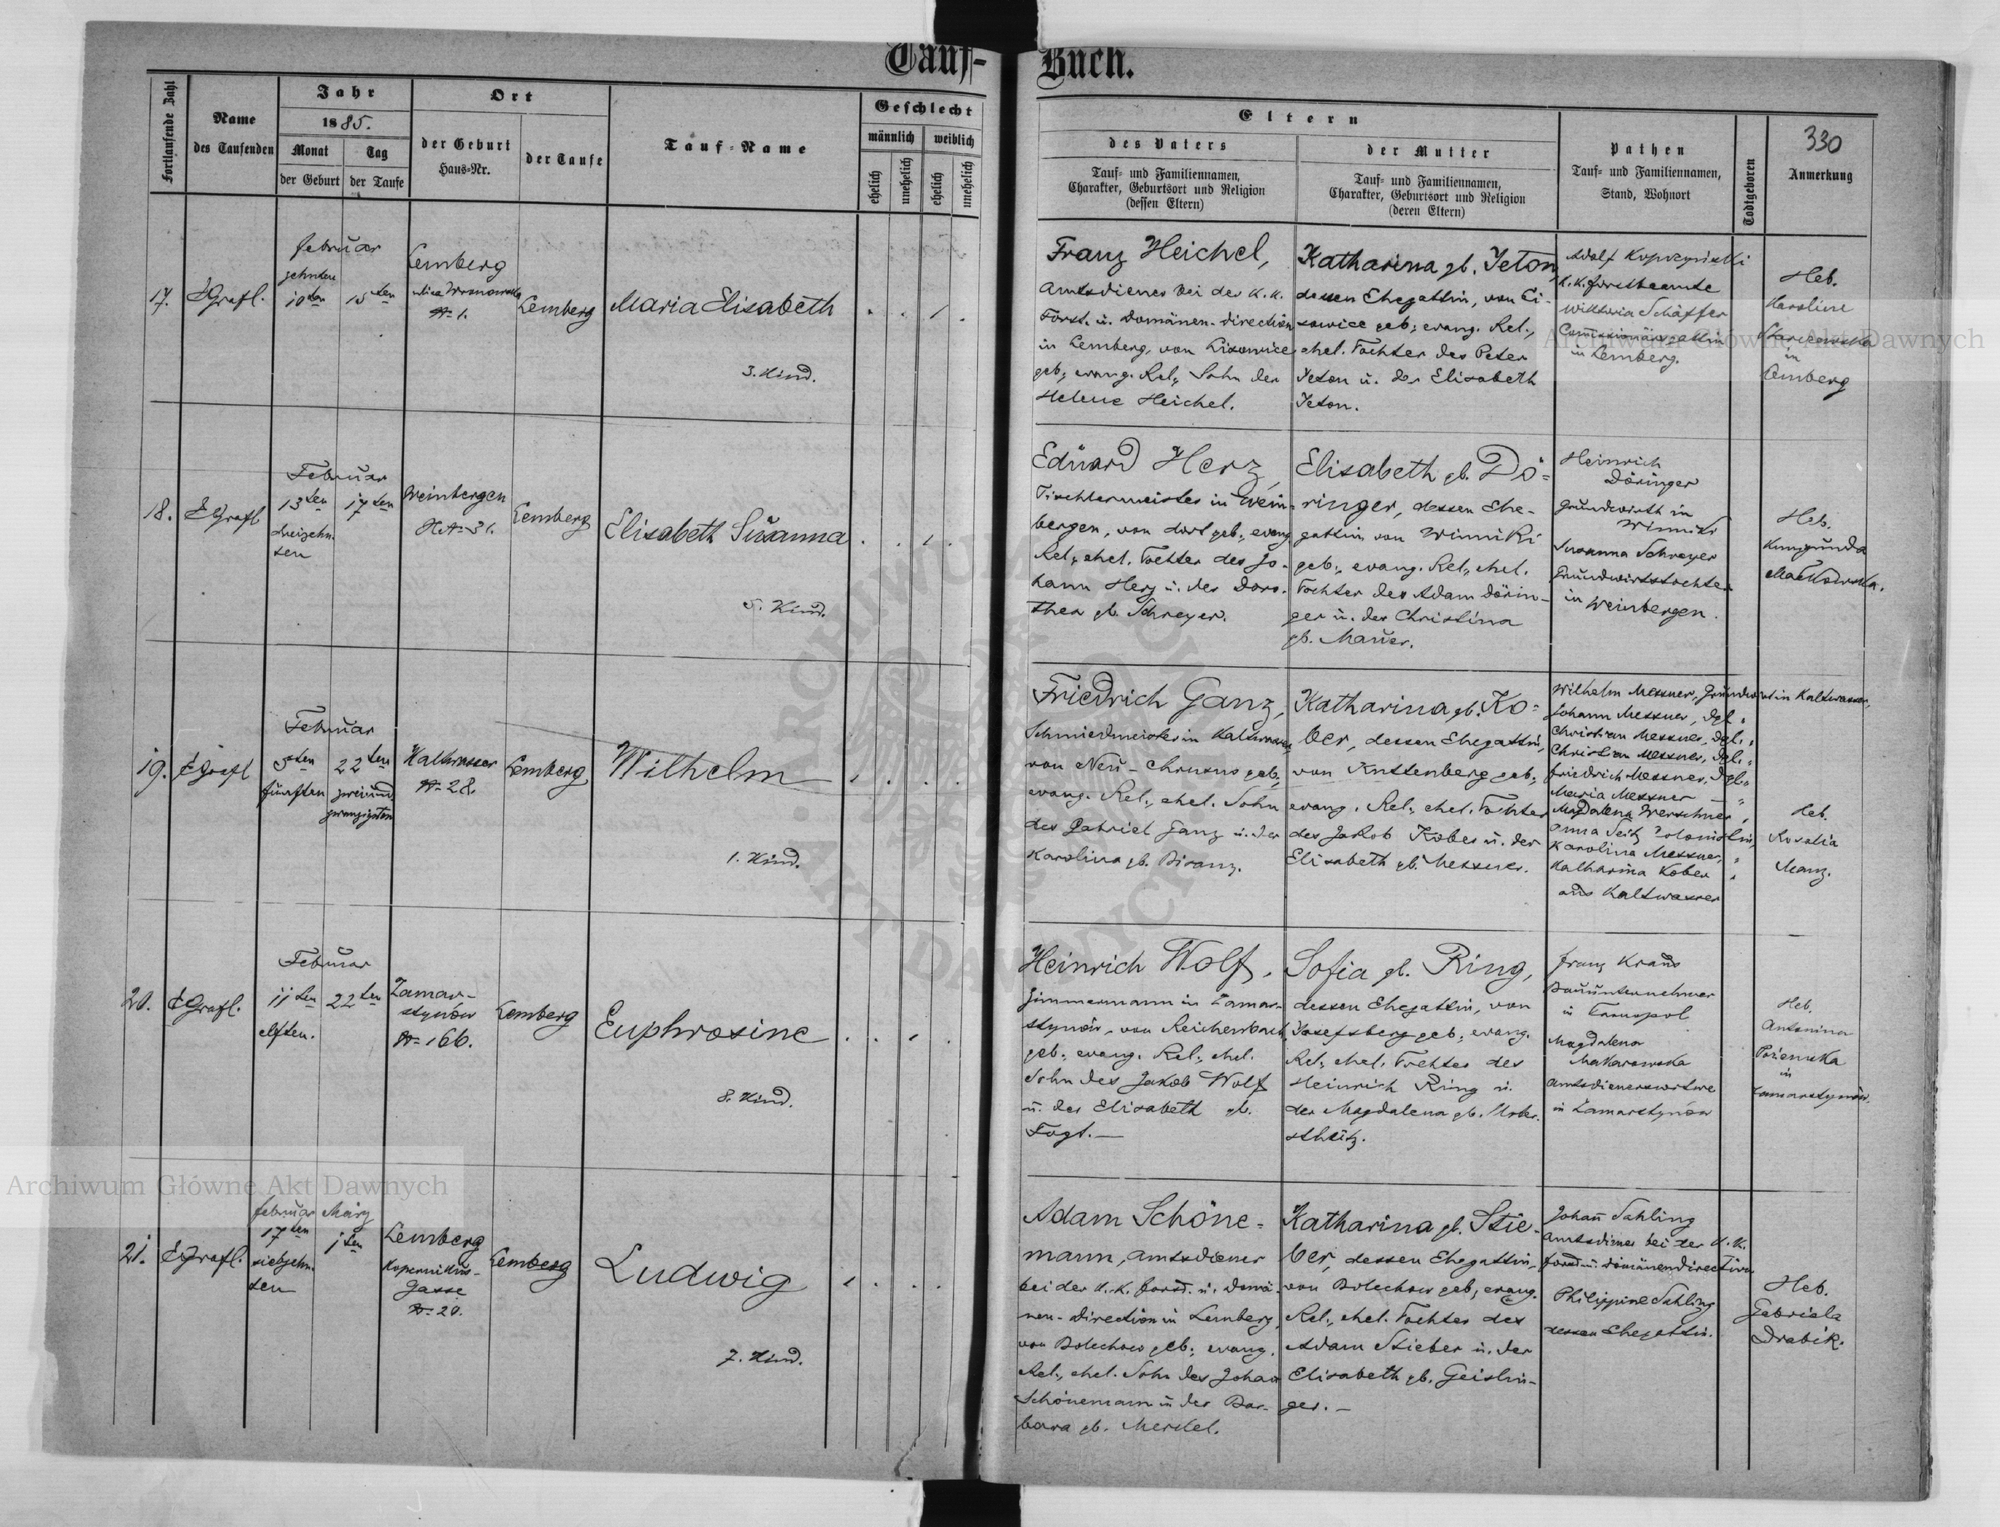 Tauf-Buch.
Fortlaufende Zahl
Name
des Taufenden
Jahr
1885.
Monat
Tag
der Geburt
der Taufe
Ort
der Geburt
Haus-Nr.
der Taufe
Tauf-Name
Geschlecht
männlich
weiblich
ehelich
unehelich
ehelich
unehelich
Eltern
des Vaters
Tauf- und Familiennamen,
Charakter, Geburtsort und Religion
(dessen Eltern)
der Mutter
Tauf- und Familiennamen,
Charakter, Geburtsort und Religion
(deren Eltern)
Pathen
Tauf- und Familiennamen,
Stand, Wohnort
Todtgeboren
330
Anmerkung
17.
EGrafl.
Februar
zehnten
10ten
15ten
Lemberg
No 1.
Lemberg
Maria Elisabeth
3. Kind.
Franz Heichel,
Amtsdiener bei der k. k.
Forst- u. Domänen-Direction
in Lemberg, von Lisowice
geb., evang. Rel., Sohn der
Helene Heichel.
Katharina gb. Jeton,
dessen Ehegattin, von Li-
sowice geb., evang. Rel.,
ehel. Tochter des Peter
Jeton u. der Elisabeth
Jeton.
Adolf
k. k. Forstbeamte
Wiktoria Schäffer
Commissionärsgattin
in Lemberg.
Heb.
Karoline
in
Lemberg
18.
EGrafl
Februar
13ten
17ten
dreizehn-
ten
Weinbergen
H.No 31.
Lemberg
Elisabeth Susanna
5. Kind.
Eduard Herz,
Tischlermeister in Wein-
bergen, von dort geb., evang.
Rel., ehel. Tochter des Jo-
hann Herz u. der Doro-
thea gb. Schreyer.
Elisabeth gb. Dö-
ringer, dessen Ehe-
gattin von Winniki
geb., evang. Rel., ehel.
Tochter des Adam Dörin-
ger u. der Christina
gb. Mauer.
Heinrich
Döringer
Grundwirth in
Winniki
Susanna Schreyer
Grundwirtstochter
in Weinbergen.
Heb.
Kunigunda
Maćkowska.
19.
EGrafl
Februar
5ten
22ten
fünften
zweiund
zwanzigsten
Kaltwasser
No 28.
Lemberg,
Wilhelm
1. Kind.
Friedrich Ganz,
Schmiedmeister in Kaltwasser,
von Neu-Chrusno geb.,
evang. Rel., ehel. Sohn
des Gabriel Ganz u. der
Karolina gb.
Katharina gb. Ko-
ber, dessen Ehegattin,
von Kuttenberg geb.,
evang. Rel., ehel. Tochter
des Jakob Kober u. der
Elisabeth gb. Messner.
Wilhelm Messner, Grundwirt in Kaltwasser,
Johann Messner, dgl. "
Christian Messner, dgl. "
Christian Messner, dgl. "
Friedrich Messner, dgl. "
Maria Messner — "
Magdalena Werschner "
Anna Seitz Colonistin,
Karolina Messner, "
Katharina Kober "
aus Kaltwasser
Heb.
Rosalia
Manz.
20.
EGrafl.
Februar
11ten
22ten
elften.
Zamar-
stynów
No 166.
Lemberg
Euphrosine
8. Kind.
Heinrich Wolf,
Zimmermann in Zamar-
stynów, von Reichenbach
geb., evang. Rel., ehel.
Sohn des Jakob Wolf
u. der Elisabeth gb.
Fogt. —
Sofia gb. Ring,
dessen Ehegattin, von
Josefsberg geb., evang.
Rel., ehel. Tochter des
Heinrich Ring u.
der Magdalena gb.
Franz Kraus
Bauunternehmer
in Tarnopol
Magdalena
Makarowska
Amtsdienerswitwe
in Zamarstynów
Heb.
Antonina
in
Zamarstynów.
21.
EGrafl.
Februar
März
17ten
1ten
siebzehn-
ten
Lemberg
Kopernikus-
Gasse
No 20.
Lemberg
Ludwig
7. Kind.
Adam Schöne-
mann, Amtsdiener
bei der k. k. Forst- u. Domä-
nen-Direction in Lemberg,
von Bolechow geb., evang.
Rel., ehel. Sohn des Johann
Schönemann u. der Bar-
bara gb. Merkel.
Katharina gb. Stie-
ber, dessen Ehegattin,
von Bolechow geb., evang.
Rel., ehel. Tochter des
Adam Stieber u. der
Elisabeth gb. Geislin-
ger. —
Johann Sahling
Amtsdiener bei der k. k.
Forst- u. Domänendirection
Philippine Sahling
dessen Ehegattin.
Heb.
Gabriela
Drabik.
Archiwum Główne Akt Dawnych
Archiwum Główne Akt Dawnych
ARCHIWUM
AKT DAWNYCH